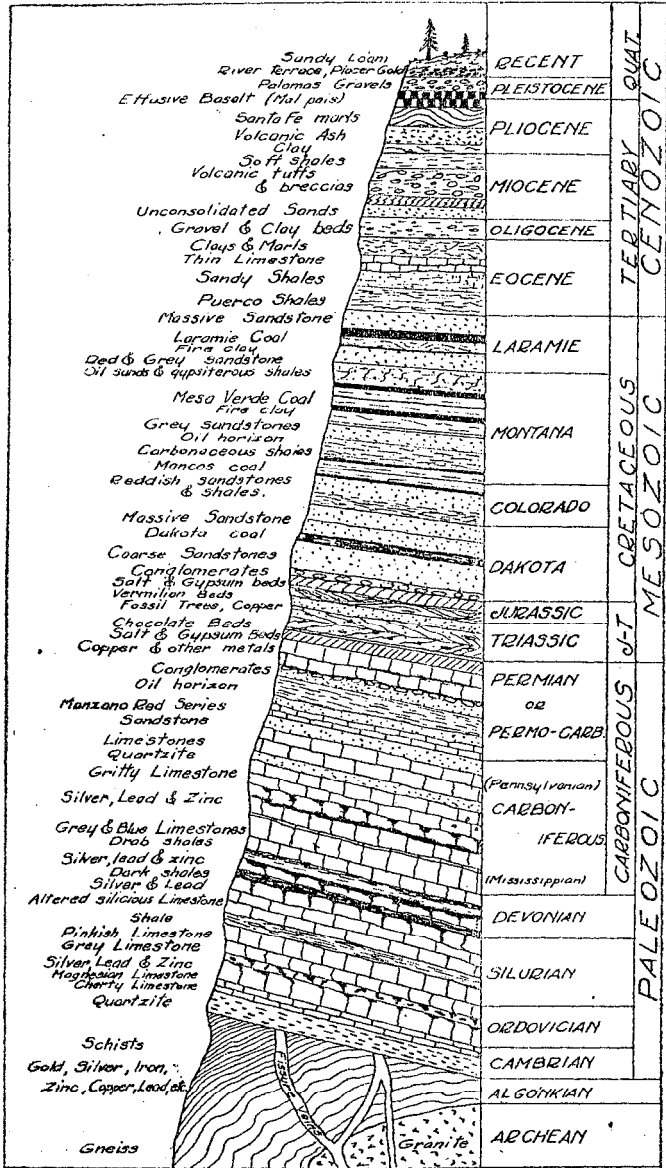 Sandy Loam
River Terrace, Placer Gold
Palomas Gravels
Effusive Basalt (Mal pais)
Santa Fe marls
Volcanic Ash
Clay
Soft shales
Volcanic tuffs
& breccias
Unconsolidated Sands
Gravel & Clay beds
Clays & Marls
Thin Limestone
Sandy Shales
Puerco Shales
Massive Sandstone
Laramie Coal
Fire clay
Red & Grey sandstone
Oil sands & gypsiferous shales
Mesa Verde Coal
Fire clay
Grey Sandstones
Oil horizon
Carbonaceous shales
Mancos coal
Reddish sandstones
& shales.
Massive Sandstone
Dakota coal
Coarse Sandstones
Conglomerates
Salt & Gypsum beds
Vermilion Beds
Fossil Trees, Copper
Chocolate Beds
Salt & Gypsum Beds
Copper & other metals
Conglomerates
Oil horizon
Manzano Red Series
Sandstone
Limestones
Quartzite
Gritty Limestone
Silver, Lead & Zinc
Grey & Blue Limestones
Drab shales
Silver, lead & zinc
Dark shales
Silver & Lead
Altered silicious Limestone
Shale
Pinkish Limestone
Gray Limestone
Silver, Lead & Zinc
Magnesian Limestone
Cherty Limestone
Quartzite
Schists
Gold, Silver, Iron,
Zinc, Copper, Lead, etc.
Gneiss
Fissure Veins
Granite
RECENT
PLEISTOCENE
PLIOCENE
MIOCENE
OLIGOCENE
EOCENE
LARAMIE
MONTANA
COLORADO
DAKOTA
JURASSIC
TRIASSIC
PERMIAN
OR
PERMO-CARB.
(Pennsylvanian)
CARBON-
IFEROUS
(Mississippian)
DEVONIAN
SILURIAN
ORDOVICIAN
CAMBRIAN
ALGONKIAN
ARCHEAN
QUAT.
TERTIARY
CRETACEOUS
J-T
CARBONIFEROUS
CENOZOIC
MESOZOIC
PALEOZOIC